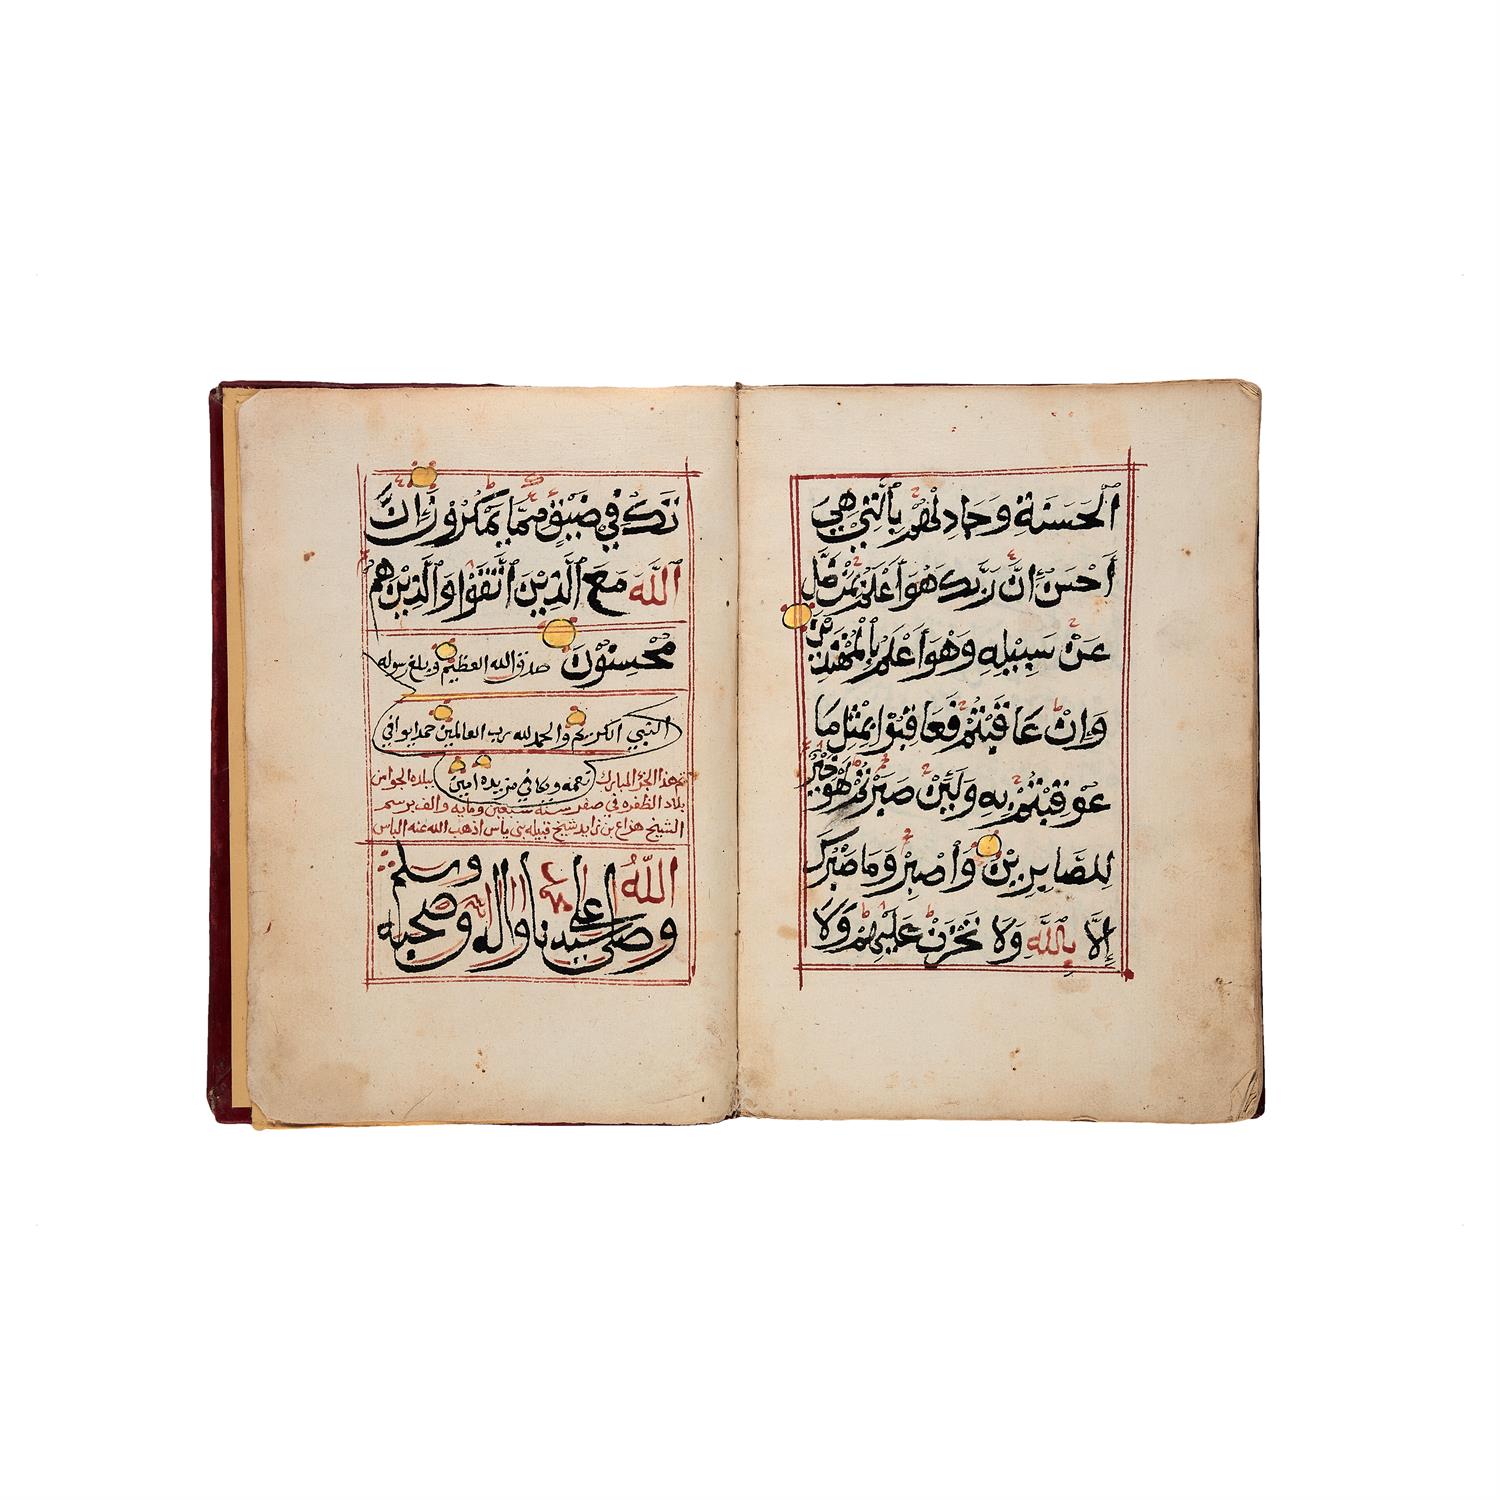 الْحَسَنَةِ وَجَادِلْهُمْ بِٱلَّتِي هِيَ
أَحْسَنُ إِنَّ رَبَّكَ هُوَ أَعْلَمُ بِمَنْ ضَلَّ
عَنْ سَبِيلِهِ وَهُوَ أَعْلَمُ بِالْمُهْتَدِينَ
وَإِنْ عَاقَبْتُمْ فَعَاقِبُوا بِمِثْلِ مَا
عُوقِبْتُمْ بِهِ وَلَئِنْ صَبَرْتُمْ لَهُوَ خَيْرٌ
لِلصَّابِرِينَ وَاصْبِرْ وَمَا صَبْرُكَ
إِلَّا بِاللَّهِ وَلَا تَحْزَنْ عَلَيْهِمْ وَلَا
تَكُ فِي ضَيْقٍ مِمَّا يَمْكُرُونَ إِنَّ
اللَّهَ مَعَ الَّذِينَ اتَّقَوْا وَالَّذِينَ هُمْ
مُحْسِنُونَ صدق الله العظيم وبلغ رسوله
النبي الكريم والحمد لله رب العالمين حمدا يوافي
نعمه ويكافي مزيده امين
تم هذا الجزؤ المبارك ببلاد الجواس
بلاد الظفره في صفر سنة سبعين ومايه والف برسم
الشيخ هزاع بن زايد شيخ قبيله بني ياس اذهب الله عنه الباس
وصلى اللهُ على سيدنا واله وصحبه وسلم